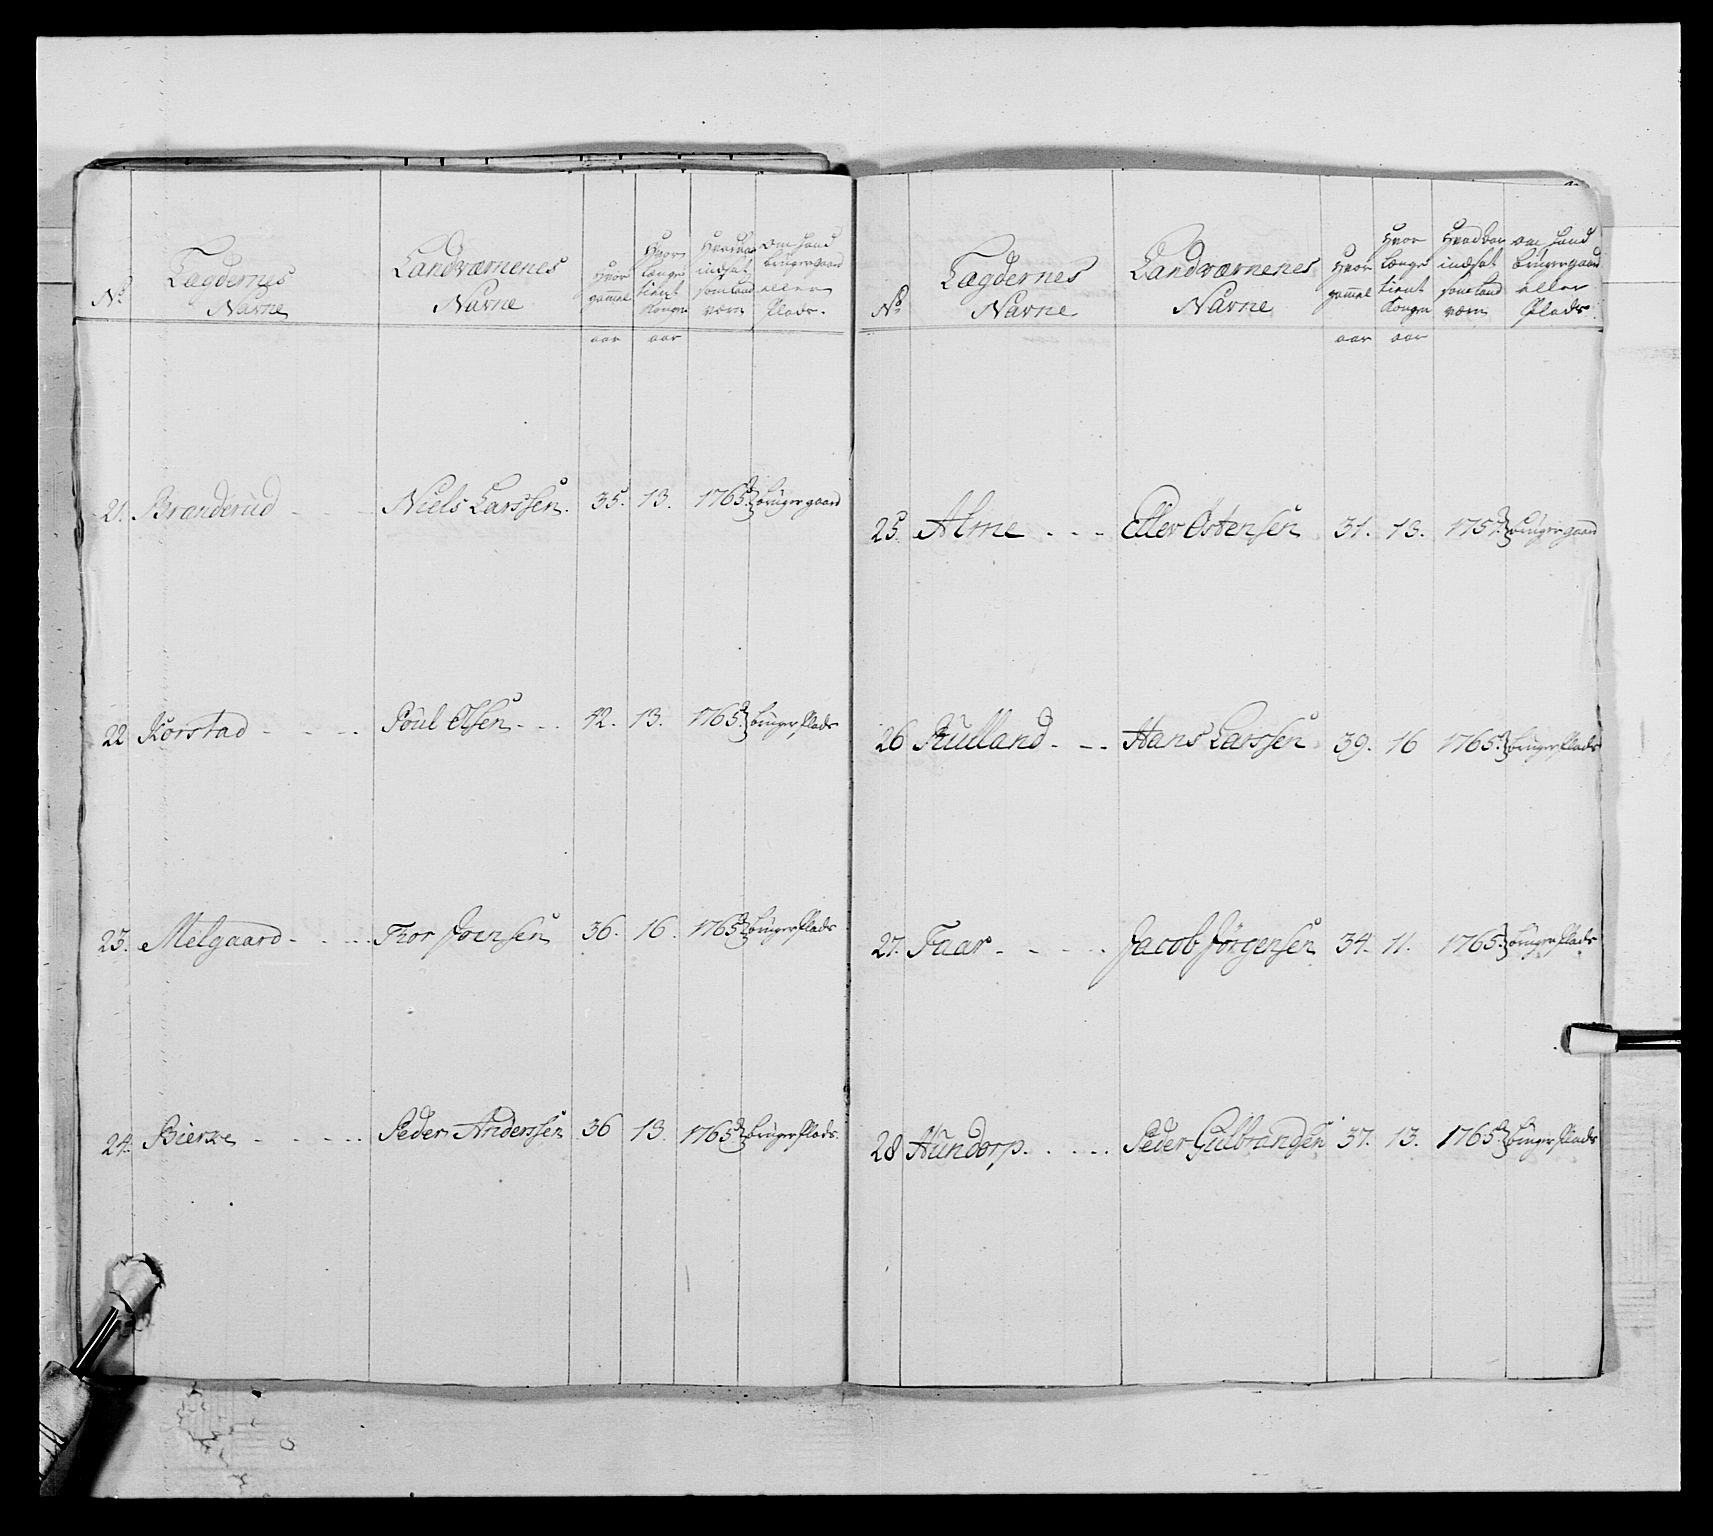 No Lægdernes Navne Landværnenes Navne Hvor gammel Hvor længe tient Kongen Hvad aar indsat som Land værn om hand bruger gaard eller Plads.
aar aar
21. Branderud - - - Niels Larssen. 35. 13. 1765. bruger gaard
22 Korstad - - - - Poul Olsen - - - 42. 13. 1765. bruger Plads
23. Melgaard - - - - Thor Joensen 36. 16. 1765. bruger Plads
24. Bierke - - - - - Peder Anderssen 36 13. 1765. bruger Plads.
No Lægdernes Navne Landværnenes Navne Hvor gammel Hvor længe tient Kongen Hvad aar indsat som Land værn om hand bruger gaard eller Plads.
aar aar
25. Alme - - - Ellev Østensen 31. 13. 1757. bruger gaard
26 Rulland - - - Hans Larssen 39. 16 1765. bruger Plads
27. Faar - - - - - Jacob Jørgensen 34. 11. 1765. bruger Plads
28 Hundorp - - - - Peder Gulbrandsen 37. 13. 1765. bruger Plads